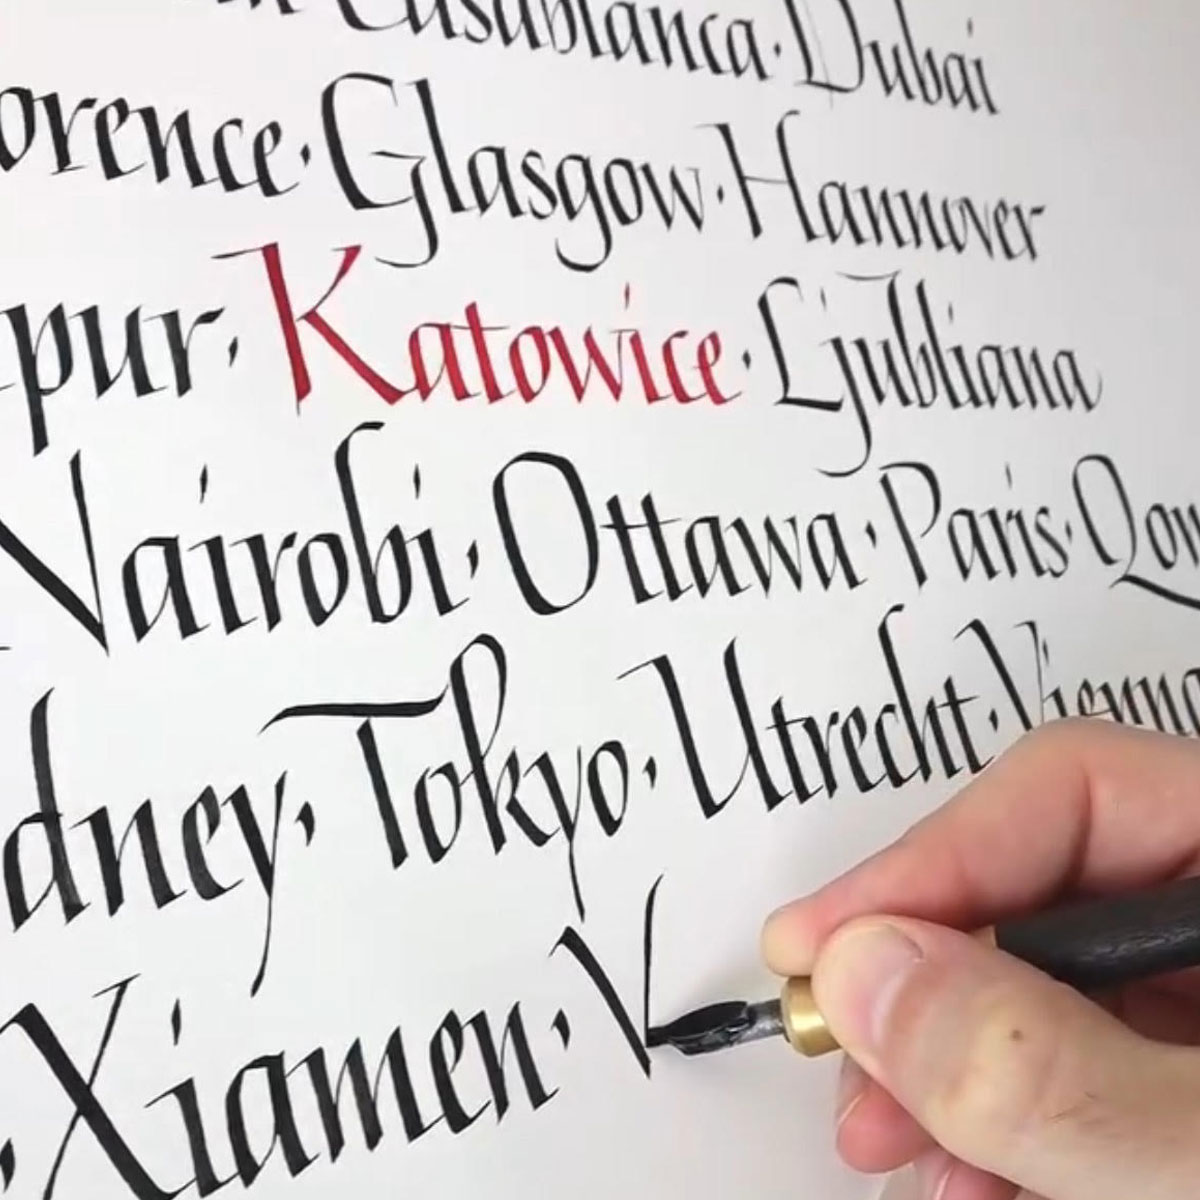 Casablanca · Dubai
orence · Glasgow · Hannover
pur · Katowice · Ljubliana
Nairobi · Ottawa · Paris · Qow
dney · Tokyo · Utrecht · Vienna
· Xiamen · V